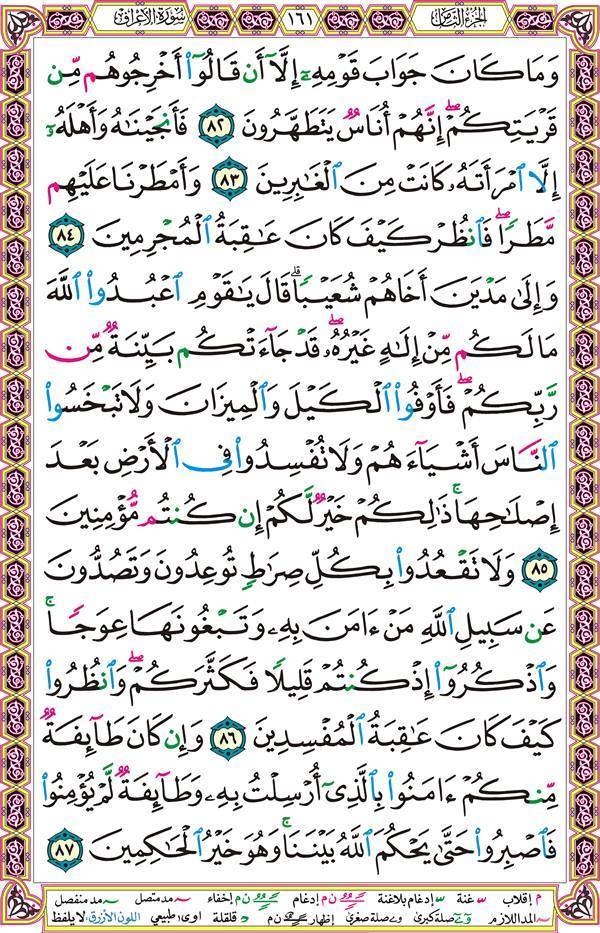 الجزء الثامن ١٦١ سورة الأعراف
وَمَا كَانَ جَوَابَ قَوْمِهِۦٓ إِلَّآ أَن قَالُوٓا۟ أَخْرِجُوهُم مِّن
قَرْيَتِكُمْ ۖ إِنَّهُمْ أُنَاسٌ يَتَطَهَّرُونَ ٨٢ فَأَنجَيْنَـٰهُ وَأَهْلَهُۥٓ
إِلَّا ٱمْرَأَتَهُۥ كَانَتْ مِنَ ٱلْغَـٰبِرِينَ ٨٣ وَأَمْطَرْنَا عَلَيْهِم
مَّطَرًا ۖ فَٱنظُرْ كَيْفَ كَانَ عَـٰقِبَةُ ٱلْمُجْرِمِينَ ٨٤
وَإِلَىٰ مَدْيَنَ أَخَاهُمْ شُعَيْبًا ۗ قَالَ يَـٰقَوْمِ ٱعْبُدُوا۟ ٱللَّهَ
مَا لَكُم مِّنْ إِلَـٰهٍ غَيْرُهُۥ ۖ قَدْ جَآءَتْكُم بَيِّنَةٌ مِّن
رَّبِّكُمْ ۖ فَأَوْفُوا۟ ٱلْكَيْلَ وَٱلْمِيزَانَ وَلَا تَبْخَسُوا۟
ٱلنَّاسَ أَشْيَآءَهُمْ وَلَا تُفْسِدُوا۟ فِى ٱلْأَرْضِ بَعْدَ
إِصْلَـٰحِهَا ۚ ذَٰلِكُمْ خَيْرٌ لَّكُمْ إِن كُنتُم مُّؤْمِنِينَ
٨٥ وَلَا تَقْعُدُوا۟ بِكُلِّ صِرَٰطٍ تُوعِدُونَ وَتَصُدُّونَ
عَن سَبِيلِ ٱللَّهِ مَنْ ءَامَنَ بِهِۦ وَتَبْغُونَهَا عِوَجًا ۚ
وَٱذْكُرُوٓا۟ إِذْ كُنتُمْ قَلِيلًا فَكَثَّرَكُمْ ۖ وَٱنظُرُوا۟
كَيْفَ كَانَ عَـٰقِبَةُ ٱلْمُفْسِدِينَ ٨٦ وَإِن كَانَ طَآئِفَةٌ
مِّنكُمْ ءَامَنُوا۟ بِٱلَّذِىٓ أُرْسِلْتُ بِهِۦ وَطَآئِفَةٌ لَّمْ يُؤْمِنُوا۟
فَٱصْبِرُوا۟ حَتَّىٰ يَحْكُمَ ٱللَّهُ بَيْنَنَا ۚ وَهُوَ خَيْرُ ٱلْحَـٰكِمِينَ ٨٧
م إقلاب غنة إدغام بلاغنة ن م إدغام إخفاء مد متصل مد منفصل
المد اللازم صلة كبرى صلة صغرى إظهار ن م قلقلة اوى طبيعي اللون الأزرق لا يلفظ